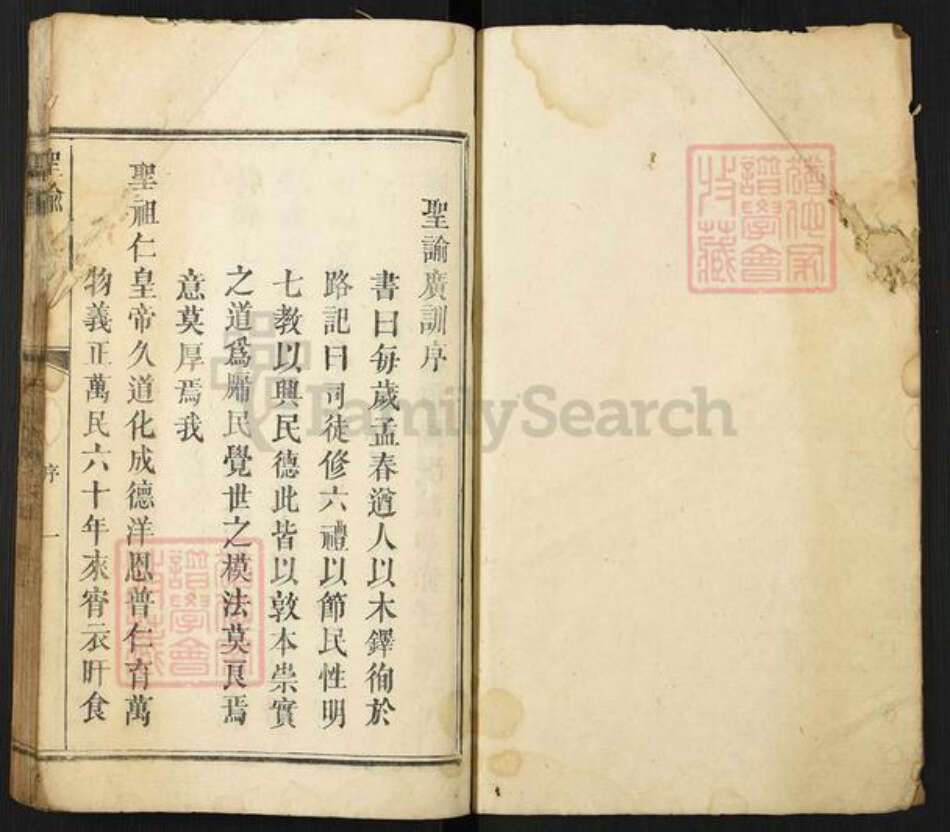 聖諭廣訓序
書曰每歲孟春遒人以木鐸徇於
路記曰司徒修六禮以節民性明
七教以興民德此皆以敦本崇實
之道為牖民覺世之模法莫良焉
意莫厚焉我
聖祖仁皇帝久道化成德洋恩普仁育萬
物義正萬民六十年來宵衣旰食
聖諭
序
一
譜學會
FamilySearch